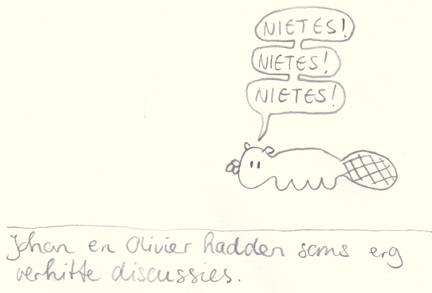 NIETES!
NIETES!
NIETES!
Johan en Olivier hadden soms erg
verhitte discussies.